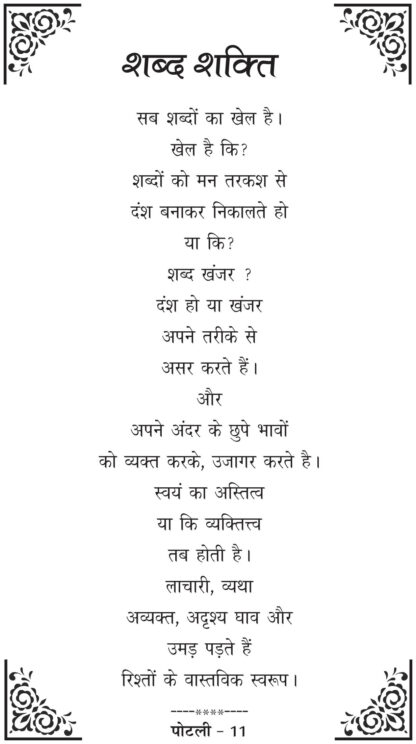 शब्द शक्ति
सब शब्दों का खेल है।
खेल है कि?
शब्दों को मन तरकश से
दंश बनाकर निकालते हो
या कि?
शब्द खंजर ?
दंश हो या खंजर
अपने तरीके से
असर करते हैं।
और
अपने अंदर के छुपे भावों
को व्यक्त करके, उजागर करते है।
स्वयं का अस्तित्व
या कि व्यक्तित्त्व
तब होती है।
लाचारी, व्यथा
अव्यक्त, अदृश्य घाव और
उमड़ पड़ते हैं
रिश्तों के वास्तविक स्वरूप।
----****----
पोटली - 11